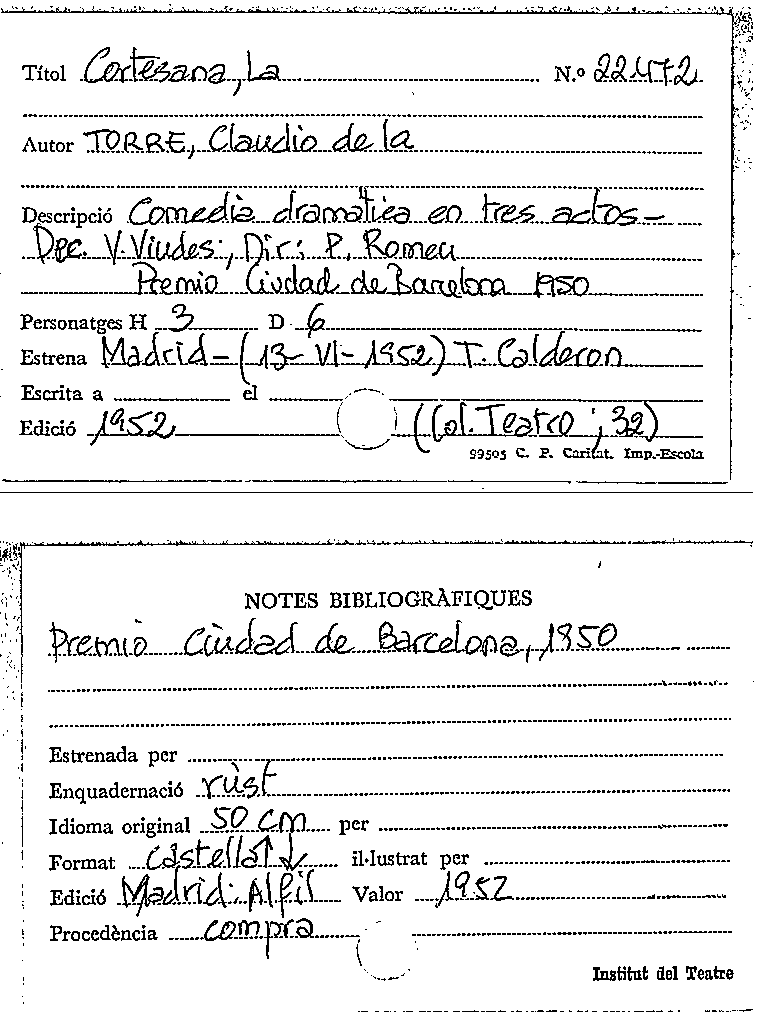 Títol Cortesana, La N.º 22472
Autor TORRE, Claudio de la
Descripció Comedia dramatica en tres actos-
Dec. V. Viudes; Dir.: P. Romeu
Premio Ciudad de Barcelona 1950
Personatges H 3 D 6
Estrena Madrid-(13-VI-1952) T. Calderon
Escrita a el
Edició 1952 (Col. Teatro ; 32)
99505 C. P. Caritat. Imp.-Escola
NOTES BIBLIOGRÀFIQUES
Premio Ciudad de Barcelona, 1950
Estrenada per
Enquadernació rúst
Idioma original 50 cm per
Format castellà ↑↓ il·lustrat per
Edició Madrid: Alfil Valor 1952
Procedència compra
Institut del Teatre